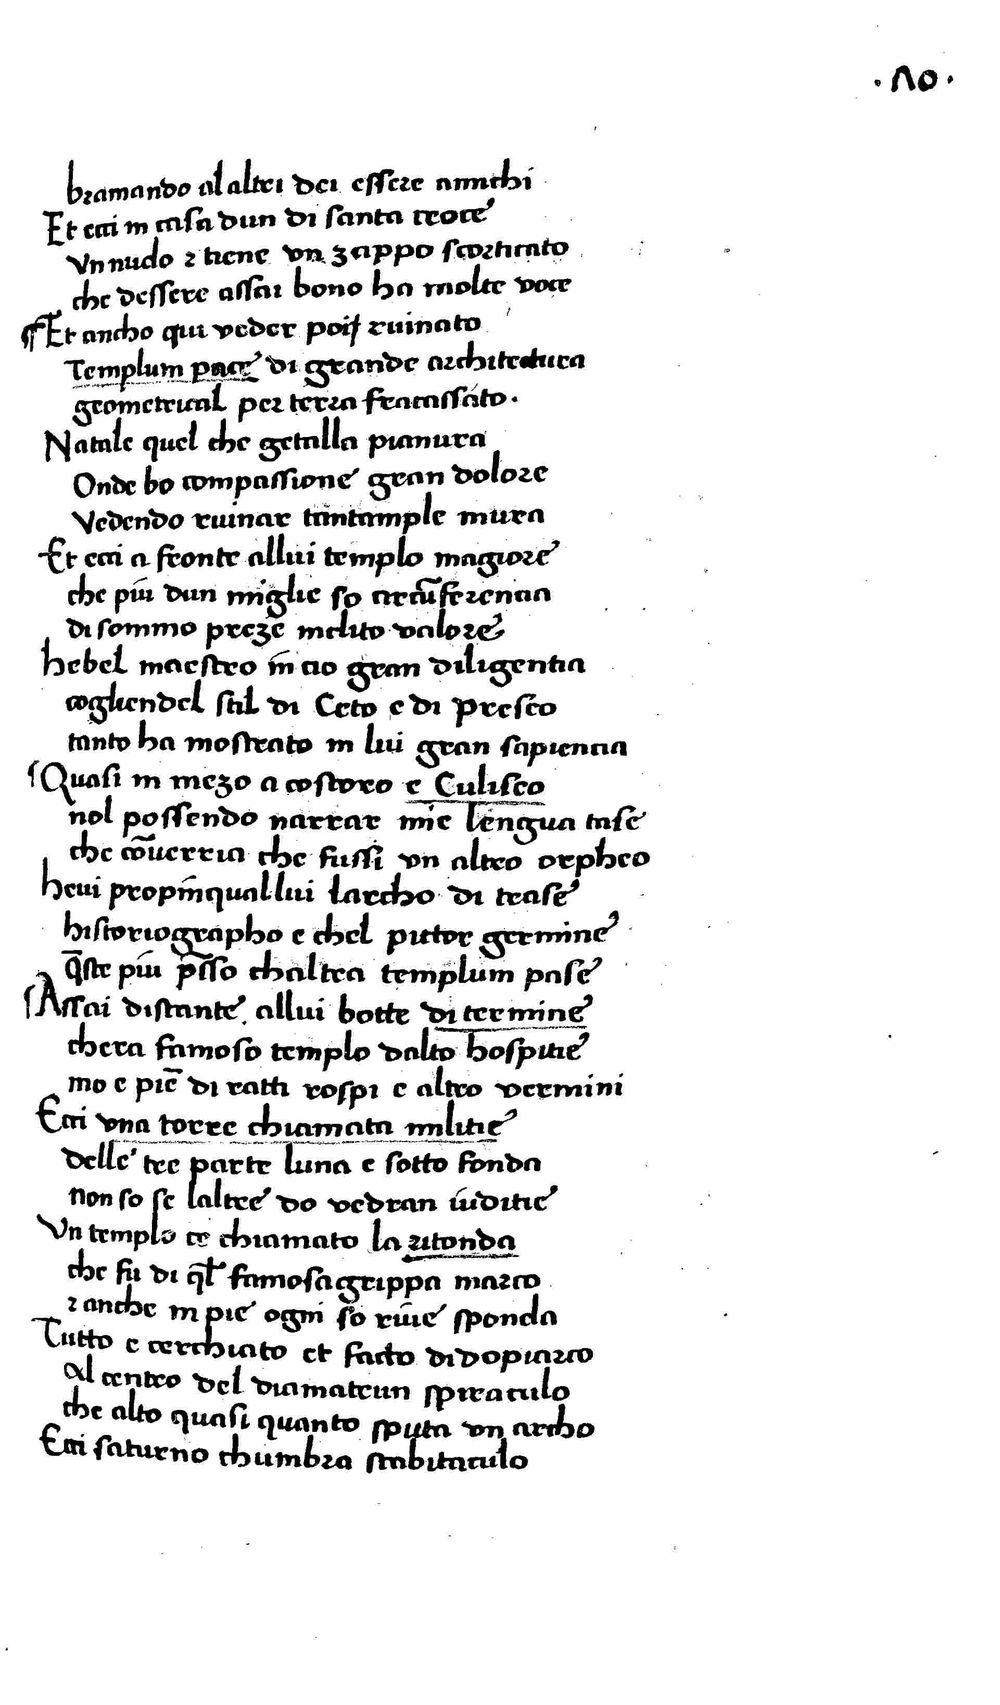 ·Λ0·
bramando al altri dei essere amichi
Et ecci in casa dun di santa croce
Vn nudo ⁊ tiene vn zappo scorticato
che dessere assai bono ha molte voce
¶ Et ancho qui veder poij ruinato
Templum pace di grande architectura
geometrical per terra fracassato·
Natale quel che getalla pianura
Onde ho compassione gran dolore
Vedendo ruinar tantample mura
Et ecci a fronte allui templo magiore
che piu dun miglie so circū̄ferencia
di sommo preze inclito valore
hebel maestro in cio gran diligentia
cogliendel stil di Ceto e di Presco
tanto ha mostrato in lui gran sapiencia
Quasi in mezo a costoro e Culiseo
nol possendo narrar mie lengua tase
che cōuerria che fussi vn altro orpheo
heui propīqual lui larcho di trase
historiographo e chel pictor germine
q̄ste piu p̄sso chaltra templum pase
Assai distante allui botte di termine
chera famoso templo dalto hospitie
mo e pie di ratti rospi e altro vermini
Ecci vna torre chiamata militie
delle tre parte luna e sotto fonda
non so se laltre do vedran iuditie
Vn templo ce chiamato la ritonda
che fu di q̄l famosagrippa marco
⁊ anche in pie ogni so riuie sponda
Tutto e cerchiato et facto di dopiarco
Al centro del diamatrun spiraculo
che alto quasi quanto sputa vn archo
Ecci saturno chumbra stabitaculo